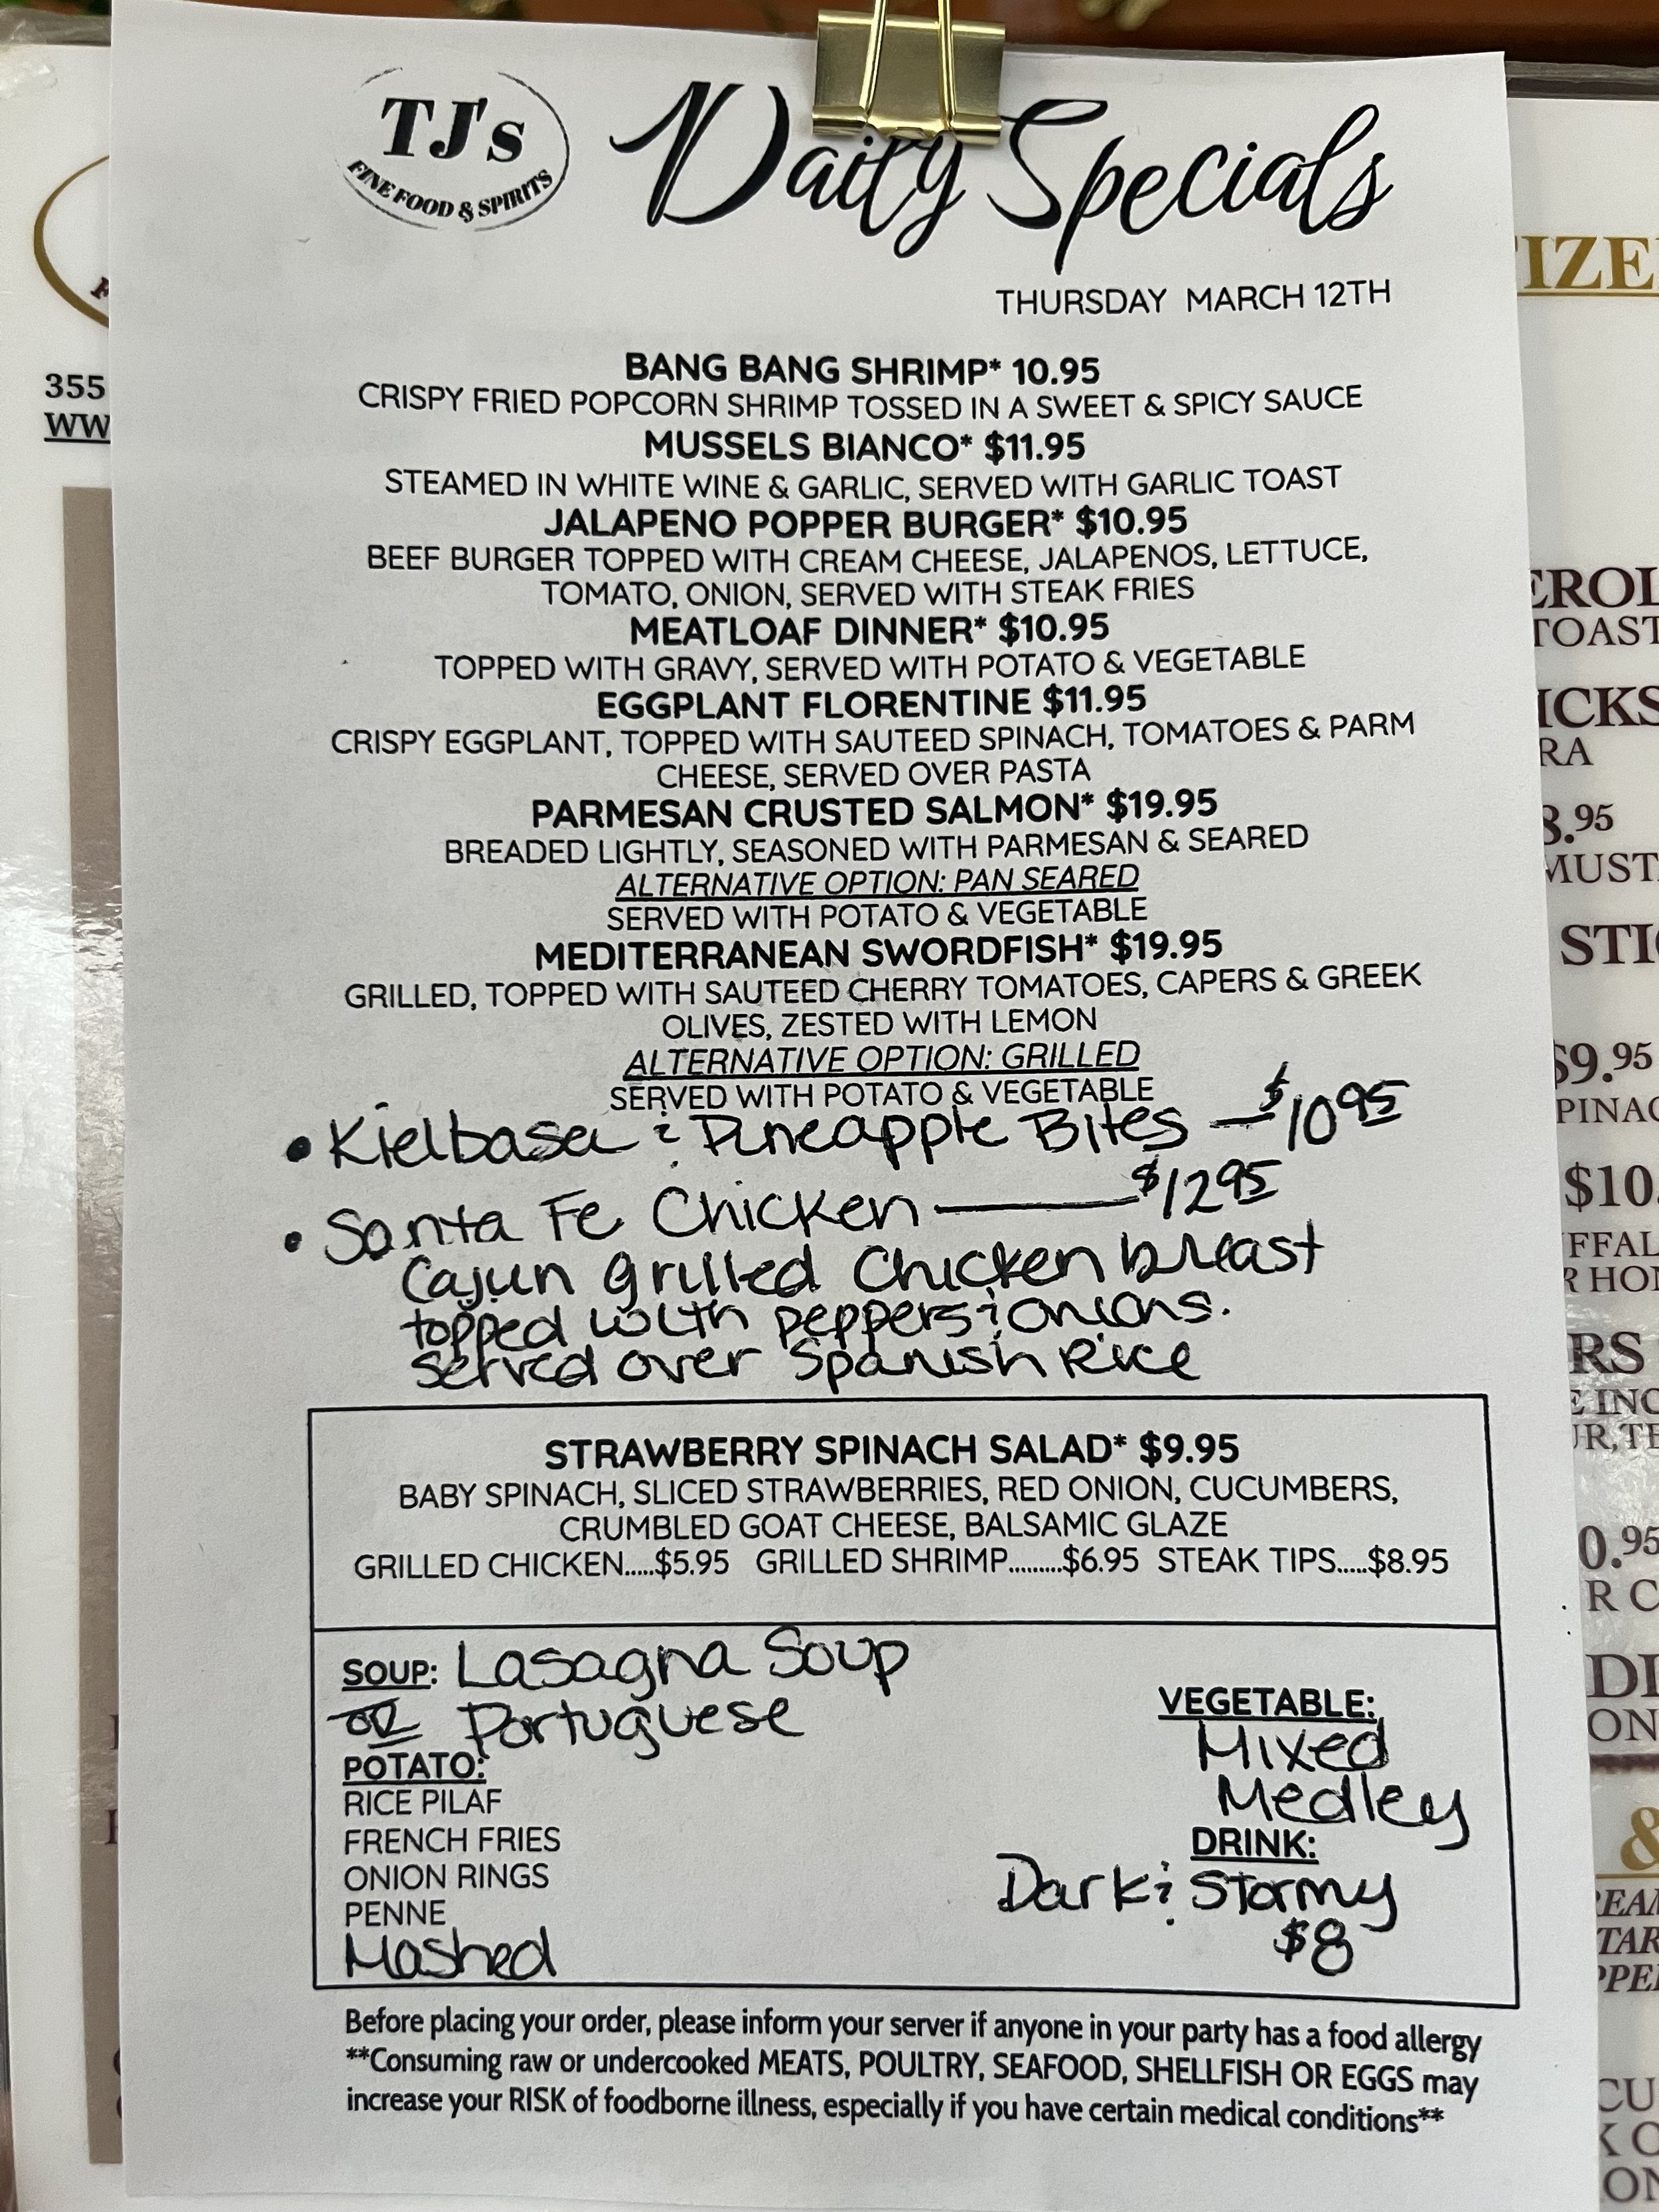 TJ's
FINE FOOD & SPIRITS
Daily Specials
THURSDAY MARCH 12TH
BANG BANG SHRIMP* 10.95
CRISPY FRIED POPCORN SHRIMP TOSSED IN A SWEET & SPICY SAUCE
MUSSELS BIANCO* $11.95
STEAMED IN WHITE WINE & GARLIC, SERVED WITH GARLIC TOAST
JALAPENO POPPER BURGER* $10.95
BEEF BURGER TOPPED WITH CREAM CHEESE, JALAPENOS, LETTUCE,
TOMATO, ONION, SERVED WITH STEAK FRIES
MEATLOAF DINNER* $10.95
TOPPED WITH GRAVY, SERVED WITH POTATO & VEGETABLE
EGGPLANT FLORENTINE $11.95
CRISPY EGGPLANT, TOPPED WITH SAUTEED SPINACH, TOMATOES & PARM
CHEESE, SERVED OVER PASTA
PARMESAN CRUSTED SALMON* $19.95
BREADED LIGHTLY, SEASONED WITH PARMESAN & SEARED
ALTERNATIVE OPTION: PAN SEARED
SERVED WITH POTATO & VEGETABLE
MEDITERRANEAN SWORDFISH* $19.95
GRILLED, TOPPED WITH SAUTEED CHERRY TOMATOES, CAPERS & GREEK
OLIVES, ZESTED WITH LEMON
ALTERNATIVE OPTION: GRILLED
SERVED WITH POTATO & VEGETABLE
• Kielbasa & Pineapple Bites — $10 95
• Santa Fe Chicken — $12 95
Cajun grilled Chicken breast
topped with peppers & onions.
served over Spanish Rice
STRAWBERRY SPINACH SALAD* $9.95
BABY SPINACH, SLICED STRAWBERRIES, RED ONION, CUCUMBERS,
CRUMBLED GOAT CHEESE, BALSAMIC GLAZE
GRILLED CHICKEN.....$5.95 GRILLED SHRIMP.........$6.95 STEAK TIPS.....$8.95
SOUP: Lasagna Soup
OR Portuguese
POTATO:
RICE PILAF
FRENCH FRIES
ONION RINGS
PENNE
Mashed
VEGETABLE:
Mixed
Medley
DRINK:
Dark & Stormy
$8
Before placing your order, please inform your server if anyone in your party has a food allergy
**Consuming raw or undercooked MEATS, POULTRY, SEAFOOD, SHELLFISH OR EGGS may
increase your RISK of foodborne illness, especially if you have certain medical conditions**
355
WW
TIZE
EROL
TOAST
ICKS
RA
8.95
MUST
STI
$9.95
SPINAC
$10.
FFAL
R HO
RS
E INC
UR,TE
0.95
R C
DI
ON
&
REAM
TAR
PPE
CU
K O
ON